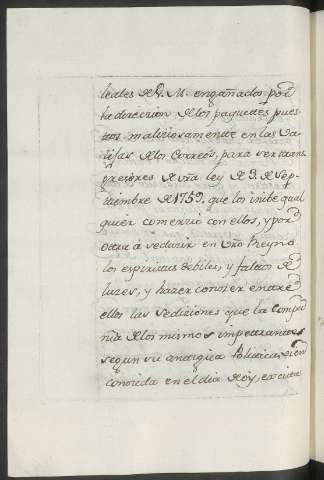 leales de V. M. engañados por
la direccion de los paquettes pues
ttos maliziosamentte en las Va
lijas de los Correos, para ser trans
gresores de vña ley de 3. de Sep-
tiembre de 1759. que los inibe qual
quier comerzio con ellos, y por
ottra á seduzir en vño Reyno
los espiritus debiles, y falttos de
luzes, y hazer conozer enttre
ellos las sediziones que la Compa
ñia de los mismos impetranttes
segun su antigua Politica, bien
conozida en el dia de oy, excita